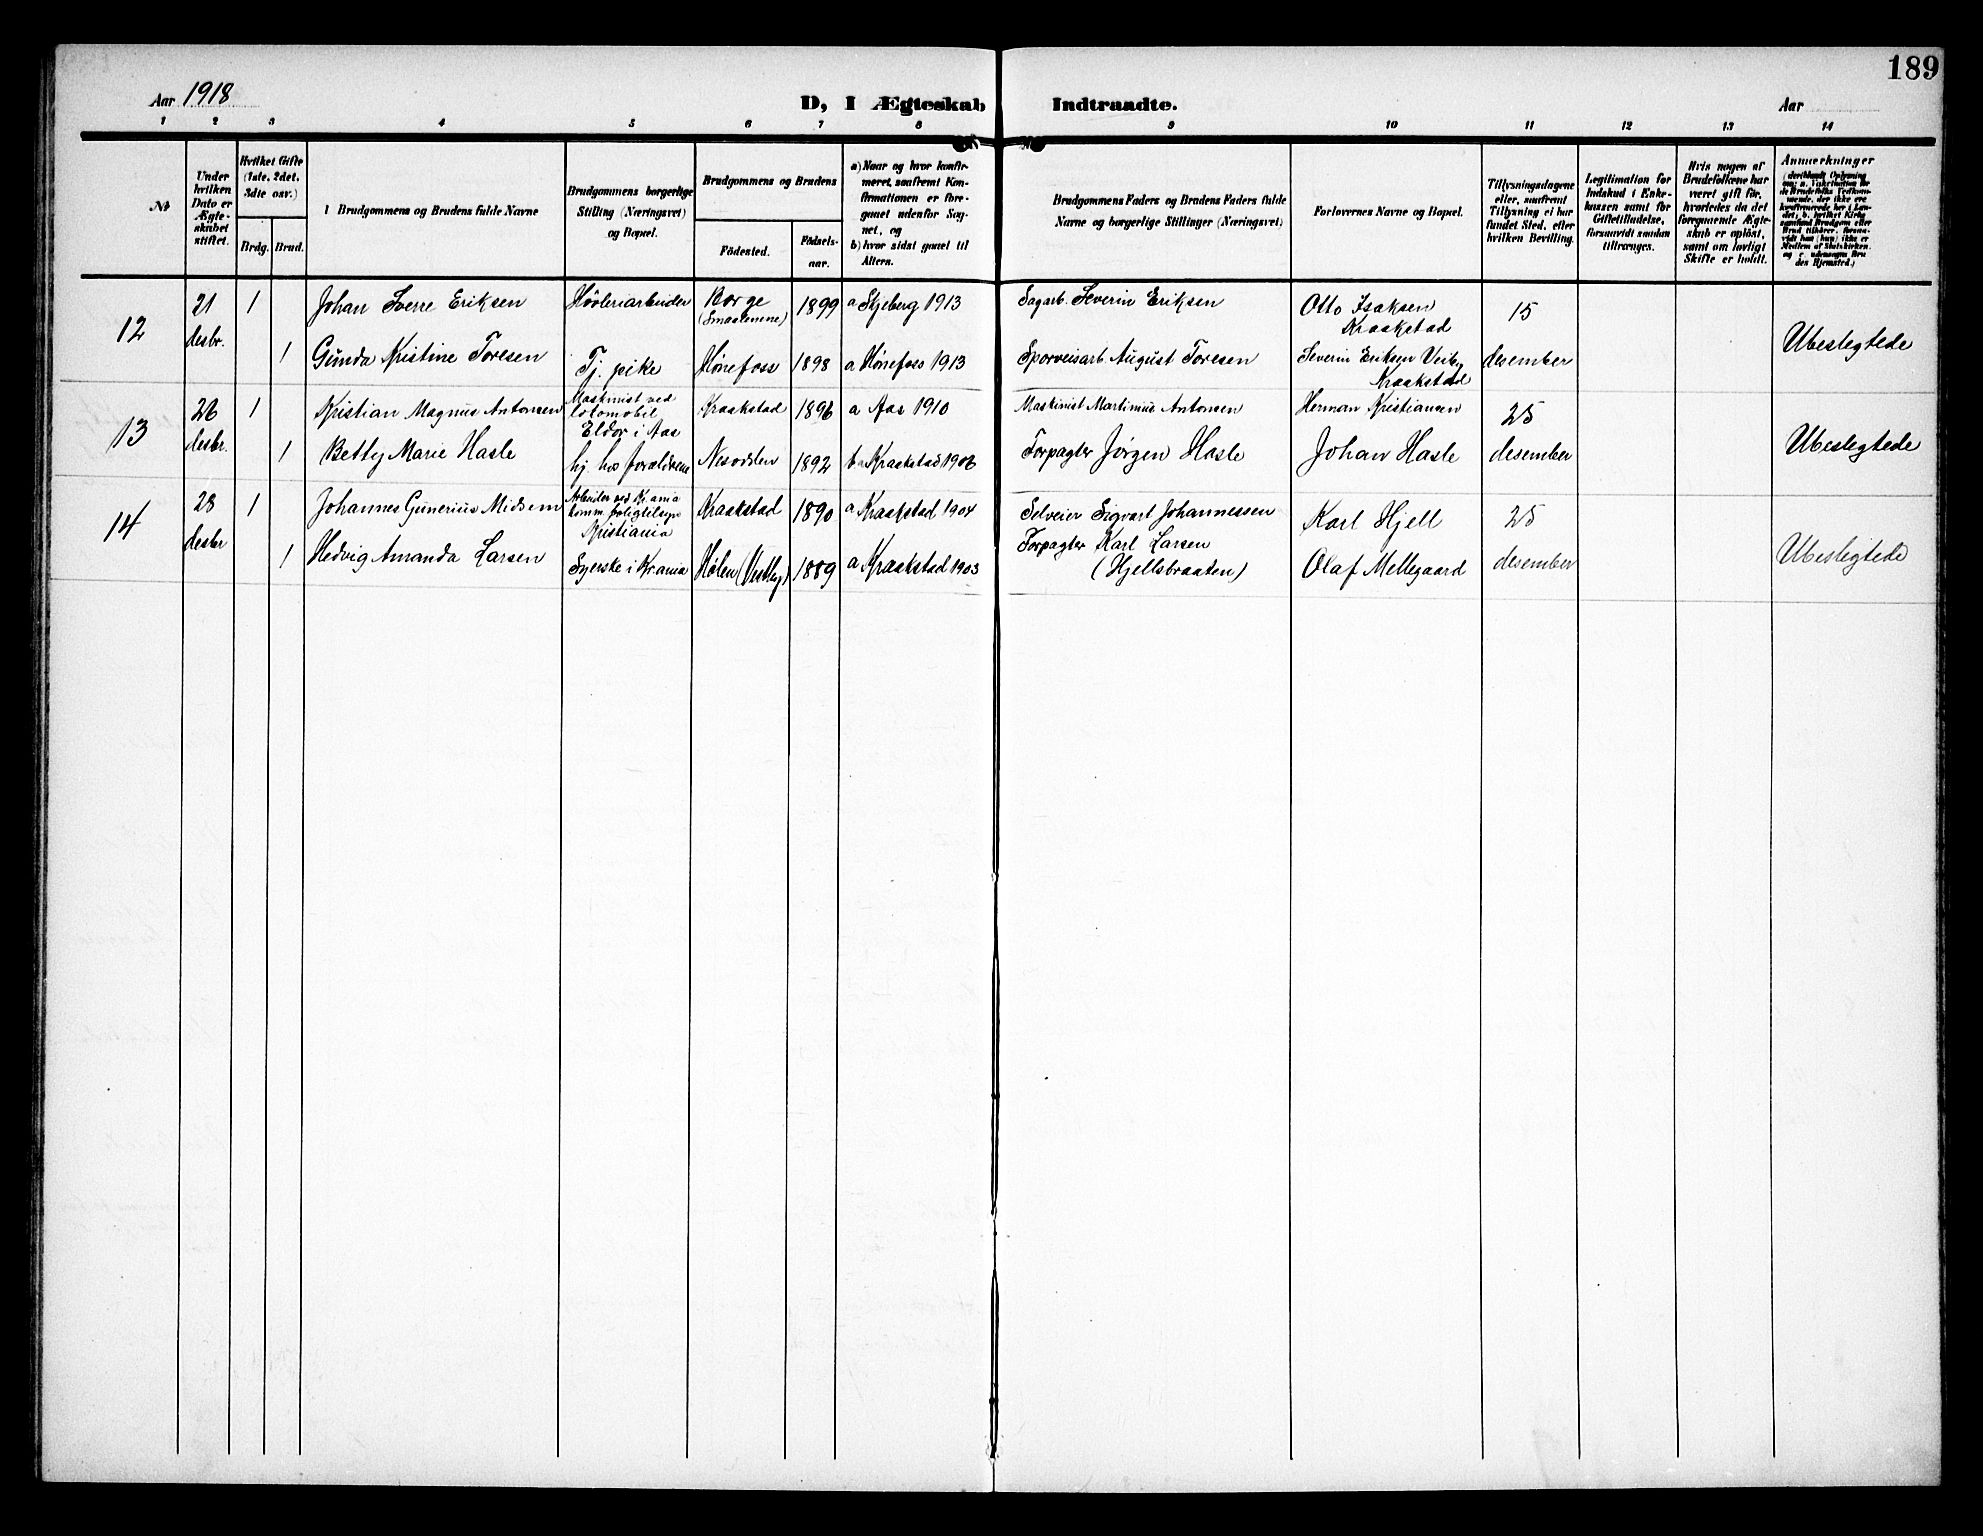 189
Aar 1918
D, I Ægteskab Indtraadte.
Aar
1 2 3 4 5 6 7 8 9 10 11 12 13 14
№
Under hvilken Dato er Ægteskabet stiftet.
Hvilket Gifte (1ste, 2det, 3die osv.)
Brdg. Brud.
Brudgommens og Brudens fulde Navne
Brudgommens borgerlige Stilling (Næringsvei) og Bopæl.
Brudgommens og Brudens
Födested.
Födselsaar.
a) Naar og hvor konfirmeret, saafremt Konfirmationen er foregaaet udenfor Sognet, og
b) hvor sidst gaaet til Alters.
Brudgommens Faders og Brudens Faders fulde Navne og borgerlige Stillinger (Næringsvei)
Forlovernes Navne og Bopæl.
Tillysningsdagene eller, saafremt Tillysning ei har fundet Sted, efter hvilken Bevilling.
Legitimation for Indskud i Enkekassen samt for Giftetilladelse, forsaavidt saadan tiltrænges.
Hvis nogen af Brudefolkene har været gift för, hvorledes da det foregaaende Ægteskab er oplöst, samt om lovligt Skifte er holdt.
Anmærkninger
12 21 desbr. 1 Johan Sverre Eriksen Høvleriarbeider Borge (Smaalenene) 1899 a Skjeberg 1913 Sagarb. Severin Eriksen Otto Isaksen Kraakstad 15 desember Ubeslegtede
1 Gunda Kristine Toresen Tj. pike Hønefoss 1898 a Hønefoss 1913 Sporveisarb August Toresen Severin Eriksen Veiby Kraakstad
13 26 desbr. 1 Kristian Magnus Antonsen Maskinist ved lokomobil Eldor i Aas Kraakstad 1896 a Aas 1910 Maskinist Martinius Antonsen Herman Kristiansen 25 desember Ubeslegtede
1 Betty Marie Hasle hj. hos forældrene Nesodden 1892 Kraakstad 1906 Forpagter Jørgen Hasle Johan Hasle
14 28 desbr 1 Johannes Gunerius Midsem Arbeider ved Kr.ania komm. boligtilsyn Kristiania Kraakstad 1890 a Kraakstad 1904 Selveier Sigvart Johannessen Karl Hjell 25 desember Ubeslegtede
1 Hedvig Amanda Larsen Syerske i Kr.ania Hølen (Vestby) 1889 a Kraakstad 1903 Forpagter Karl Larsen (Hjellsbraaten) Olaf Mellegaard